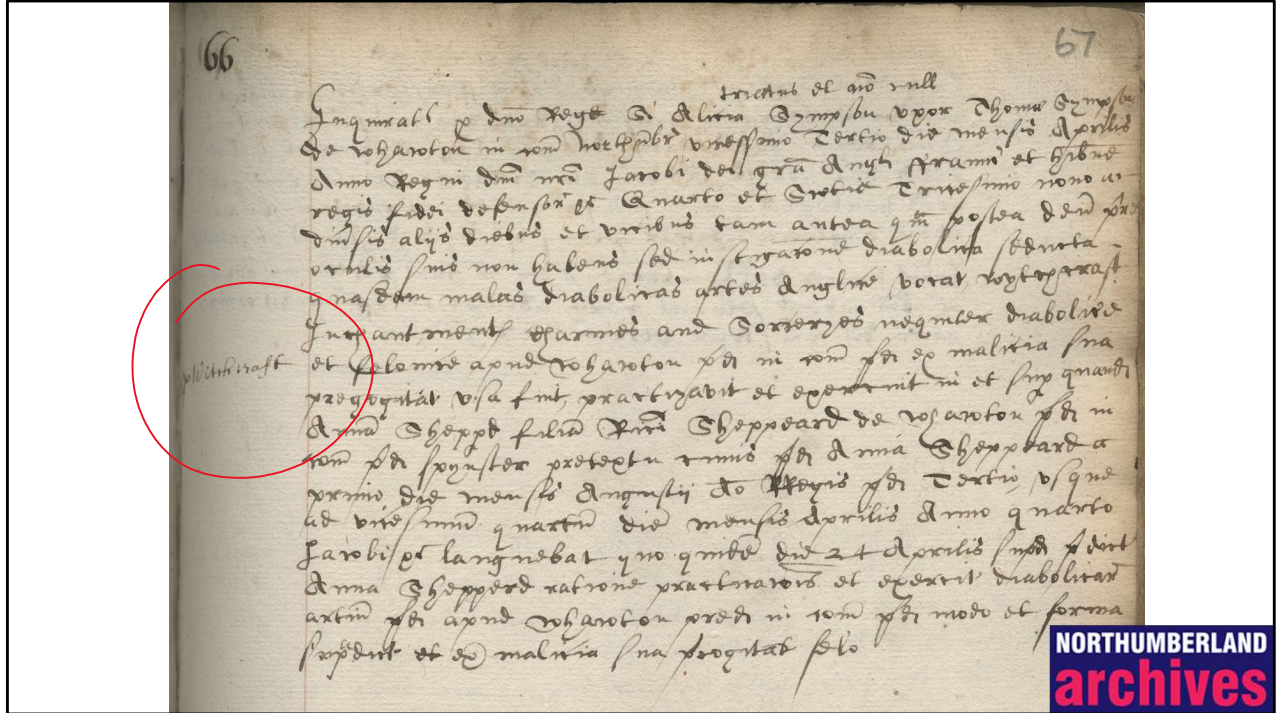 66
67
triatus et no null
Inquirat p dno Rege Si Alicia Sympson vxor Thome Sympson
de Whawton in com Northumbr vicessimo Tertio die mensis Aprilis
Anno Regni dni nri Jacobi dei gra Angl ffranc et Hibne
regis fidei defensor &c Quarto et Scotie Tricesimo nono ac
diusis alijs diebus et vicibus tam antea qm postea deu pre
oculis suis non habens sed instigacone diabolica seducta
quasdam malas diabolicas artes Anglice vocat wytchcraft
Inchantments charmes and Sorceryes nequiter diabolice
Witchcraft
et felonice apud Whawton pd in com pd ex malicia sua
precogitat vsa fuit practizavit et exercuit in et sup quand
Anna Shepp filia Rici Sheppeard de Whawton pd in
com pd spynster pretextu cuius pd Anna Sheppeard a
primo die mensis Augustij Ao RRegis pd Tertio vsque
ad vicesimum quartu die mensis Aprilis Anno quarto
Jacobi &c languebat quo quide die 24 Aprilis supd pdict
Anna Shepperd ratione practicacois et exercit diabolicar
artiu pd apud Whawton pred in com pd modo et forma
supdict et ex malicia sua precogitat felo
NORTHUMBERLAND
archives